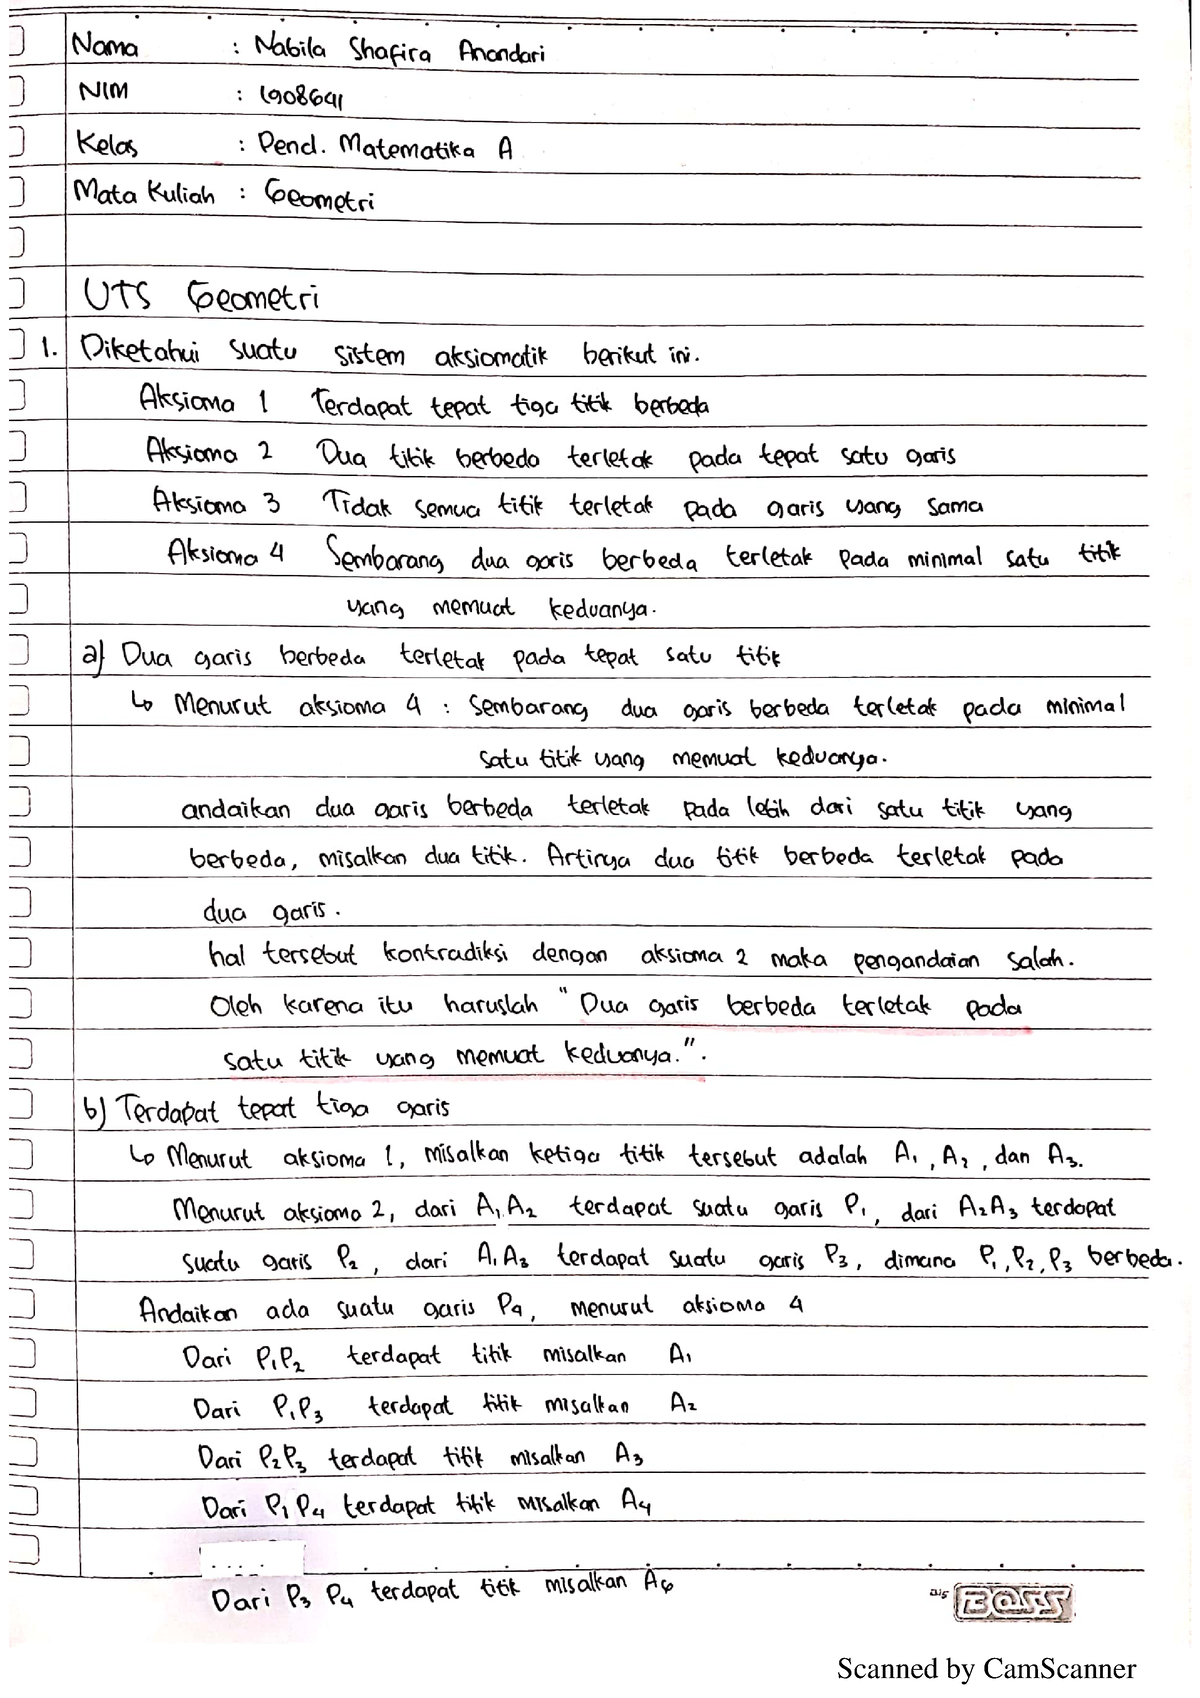 Nama : Nabila Shafira Anandari
NIM : 1908641
Kelas : Pend. Matematika A
Mata Kuliah : Geometri
UTS Geometri
1. Diketahui suatu sistem aksiomatik berikut ini.
Aksioma 1 Terdapat tepat tiga titik berbeda
Aksioma 2 Dua titik berbeda terletak pada tepat satu garis
Aksioma 3 Tidak semua titik terletak pada garis yang sama
Aksioma 4 Sembarang dua garis berbeda terletak pada minimal satu titik
yang memuat keduanya.
a) Dua garis berbeda terletak pada tepat satu titik
↳ Menurut aksioma 4 : Sembarang dua garis berbeda terletak pada minimal
satu titik yang memuat keduanya.
andaikan dua garis berbeda terletak pada lebih dari satu titik yang
berbeda, misalkan dua titik. Artinya dua titik berbeda terletak pada
dua garis.
hal tersebut kontradiksi dengan aksioma 2 maka pengandaian salah.
Oleh karena itu haruslah "Dua garis berbeda terletak pada
satu titik yang memuat keduanya.".
b) Terdapat tepat tiga garis
↳ Menurut aksioma 1, misalkan ketiga titik tersebut adalah A₁, A₂, dan A₃.
Menurut aksioma 2, dari A₁A₂ terdapat suatu garis P₁, dari A₂A₃ terdapat
suatu garis P₂, dari A₁A₃ terdapat suatu garis P₃, dimana P₁, P₂, P₃ berbeda.
Andaikan ada suatu garis P₄, menurut aksioma 4
Dari P₁P₂ terdapat titik misalkan A₁
Dari P₁P₃ terdapat titik misalkan A₂
Dari P₂P₃ terdapat titik misalkan A₃
Dari P₁P₄ terdapat titik misalkan A₄
....
Dari P₃ P₄ terdapat titik misalkan A₆
BOSS
Scanned by CamScanner